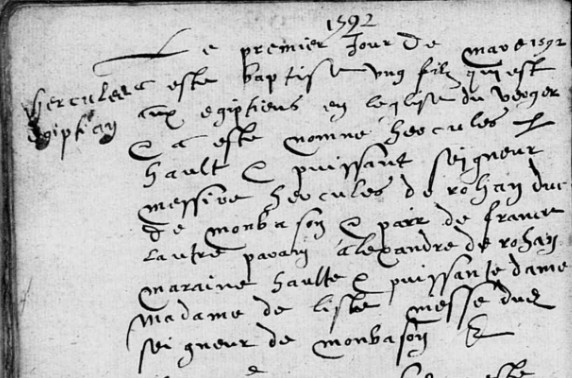 1592
Le premier Jour de mars 1592
Hercules a este baptise ung filz quj est
egiptian aux egiptiens en leglise du verger
& a este nomme hercules p
hault & puissant seigneur
messire hercules de rohan duc
de monbason & pair de france
lautre parain alexandre de rohan
maraine haulte & puissante dame
madame de
seigneur de monbason &